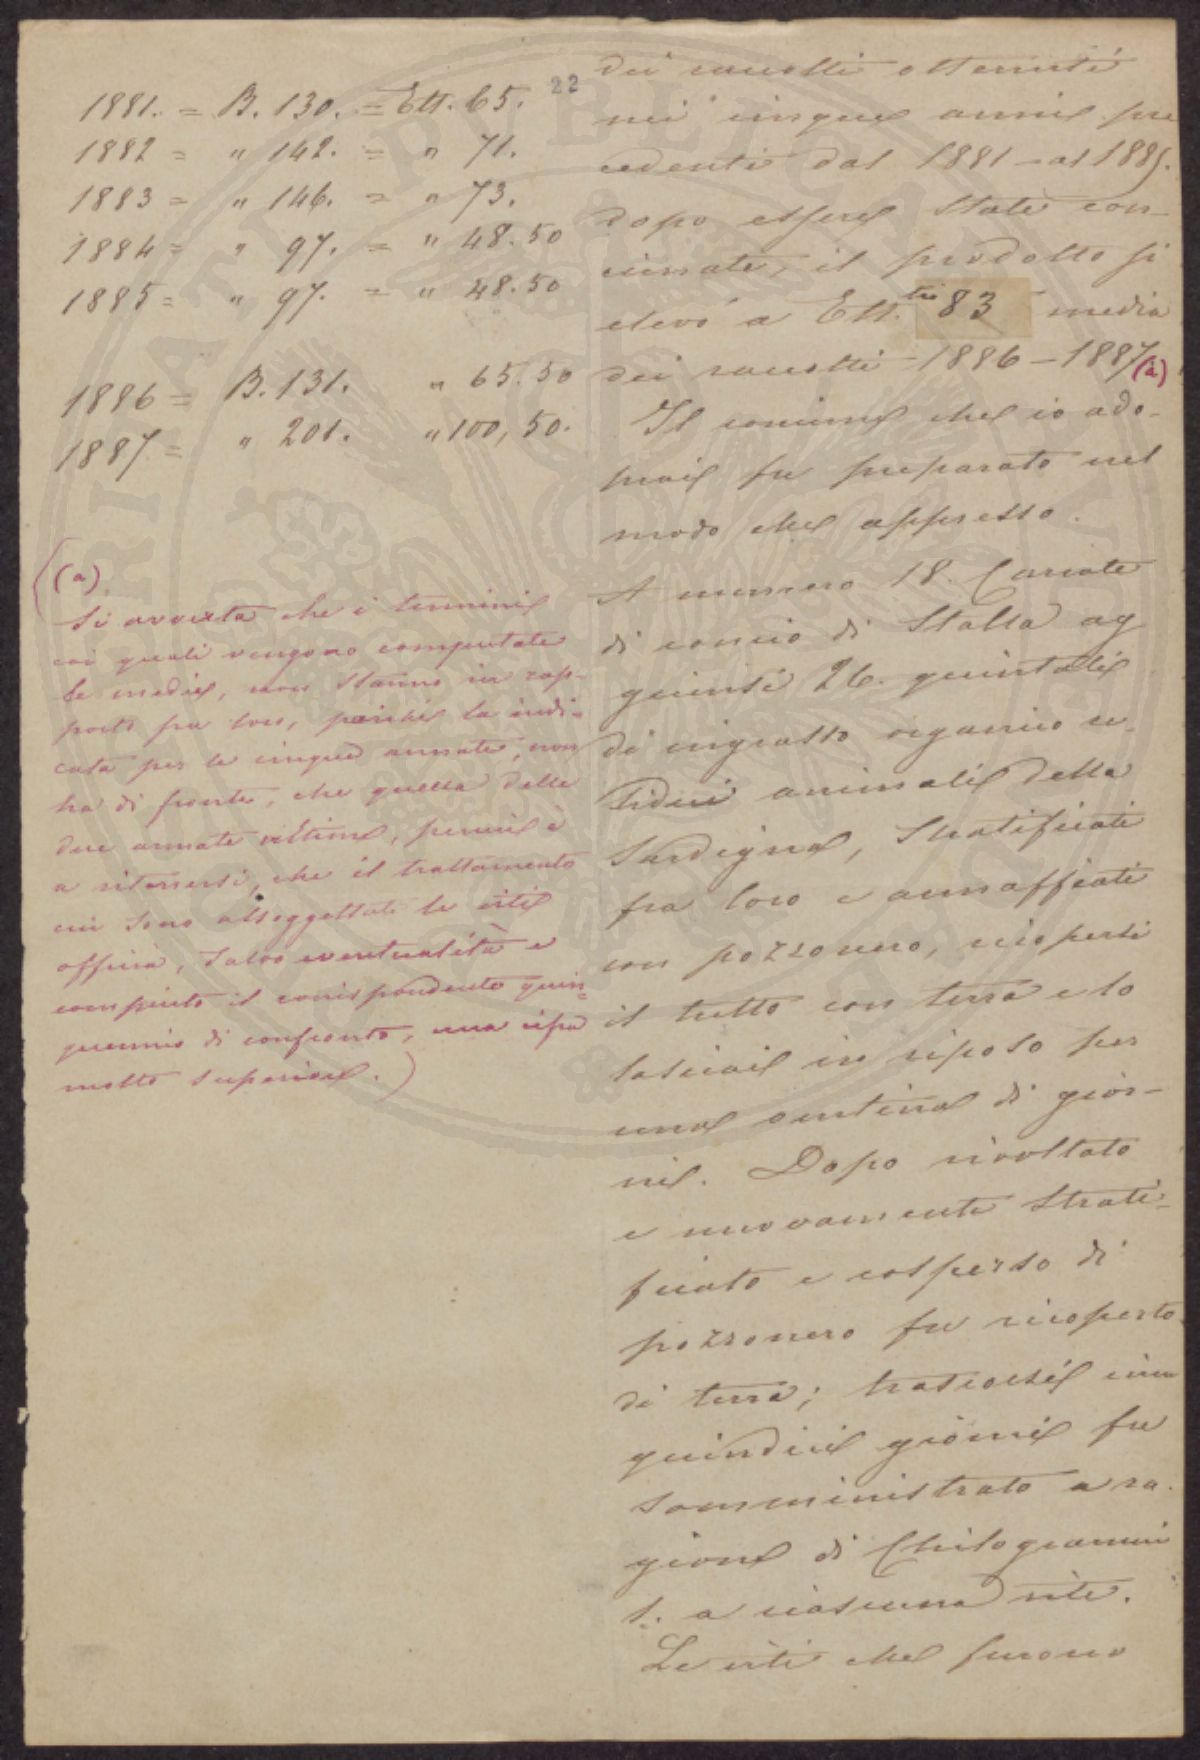 22
1881. = B. 130. = Ett. 65.
1882 = " 142. = " 71.
1883 = " 146. = " 73.
1884 = " 97. = " 48.50
1885 = " 97. = " 48.50
1886 = B. 131. " 65.50
1887 = " 201. " 100,50.
(a)
Si avverta che i termini
coi quali vengono computate
le medie, non stanno in rap-
porto fra loro, perché la indi-
cata per le cinque annate, non
ha di fronte, che quella delle
due annate ultime, perciò è
a ritenersi, che il trattamento
cui sono assoggettate le viti
offrirà, salvo eventualità e
compiuto il corrispondente quin-
quennio di confronto, una cifra
molto superiore.)
dei raccolti ottenuti
nei cinque anni pre
cedenti dal 1881 - al 1885.
dopo essere state con-
cimate, il prodotto si
elevò a Ett.tri 83 media
dei raccolti 1886 - 1887 (a)
Il concime che io ado-
prai fu preparato nel
modo che appresso.
A numero 18. Carrate
di concio di Stalla ag
giunsi 26. quintali
di ingrasso organico re-
sidui animali della
Sardigna, Stratificati
fra loro e annaffiati
con pozzonero, ricoperti
il tutto con terra e lo
lasciai in riposo per
una ventina di gior-
ni. Dopo rivoltato
e nuovamente Strati-
ficato e cosperso di
pozzonero fu ricoperto
di terra; trascorsi circa
quindici giorni fu
somministrato a ra-
gione di Chilogrammi
5. a ciascuna vite.
Le viti che furono